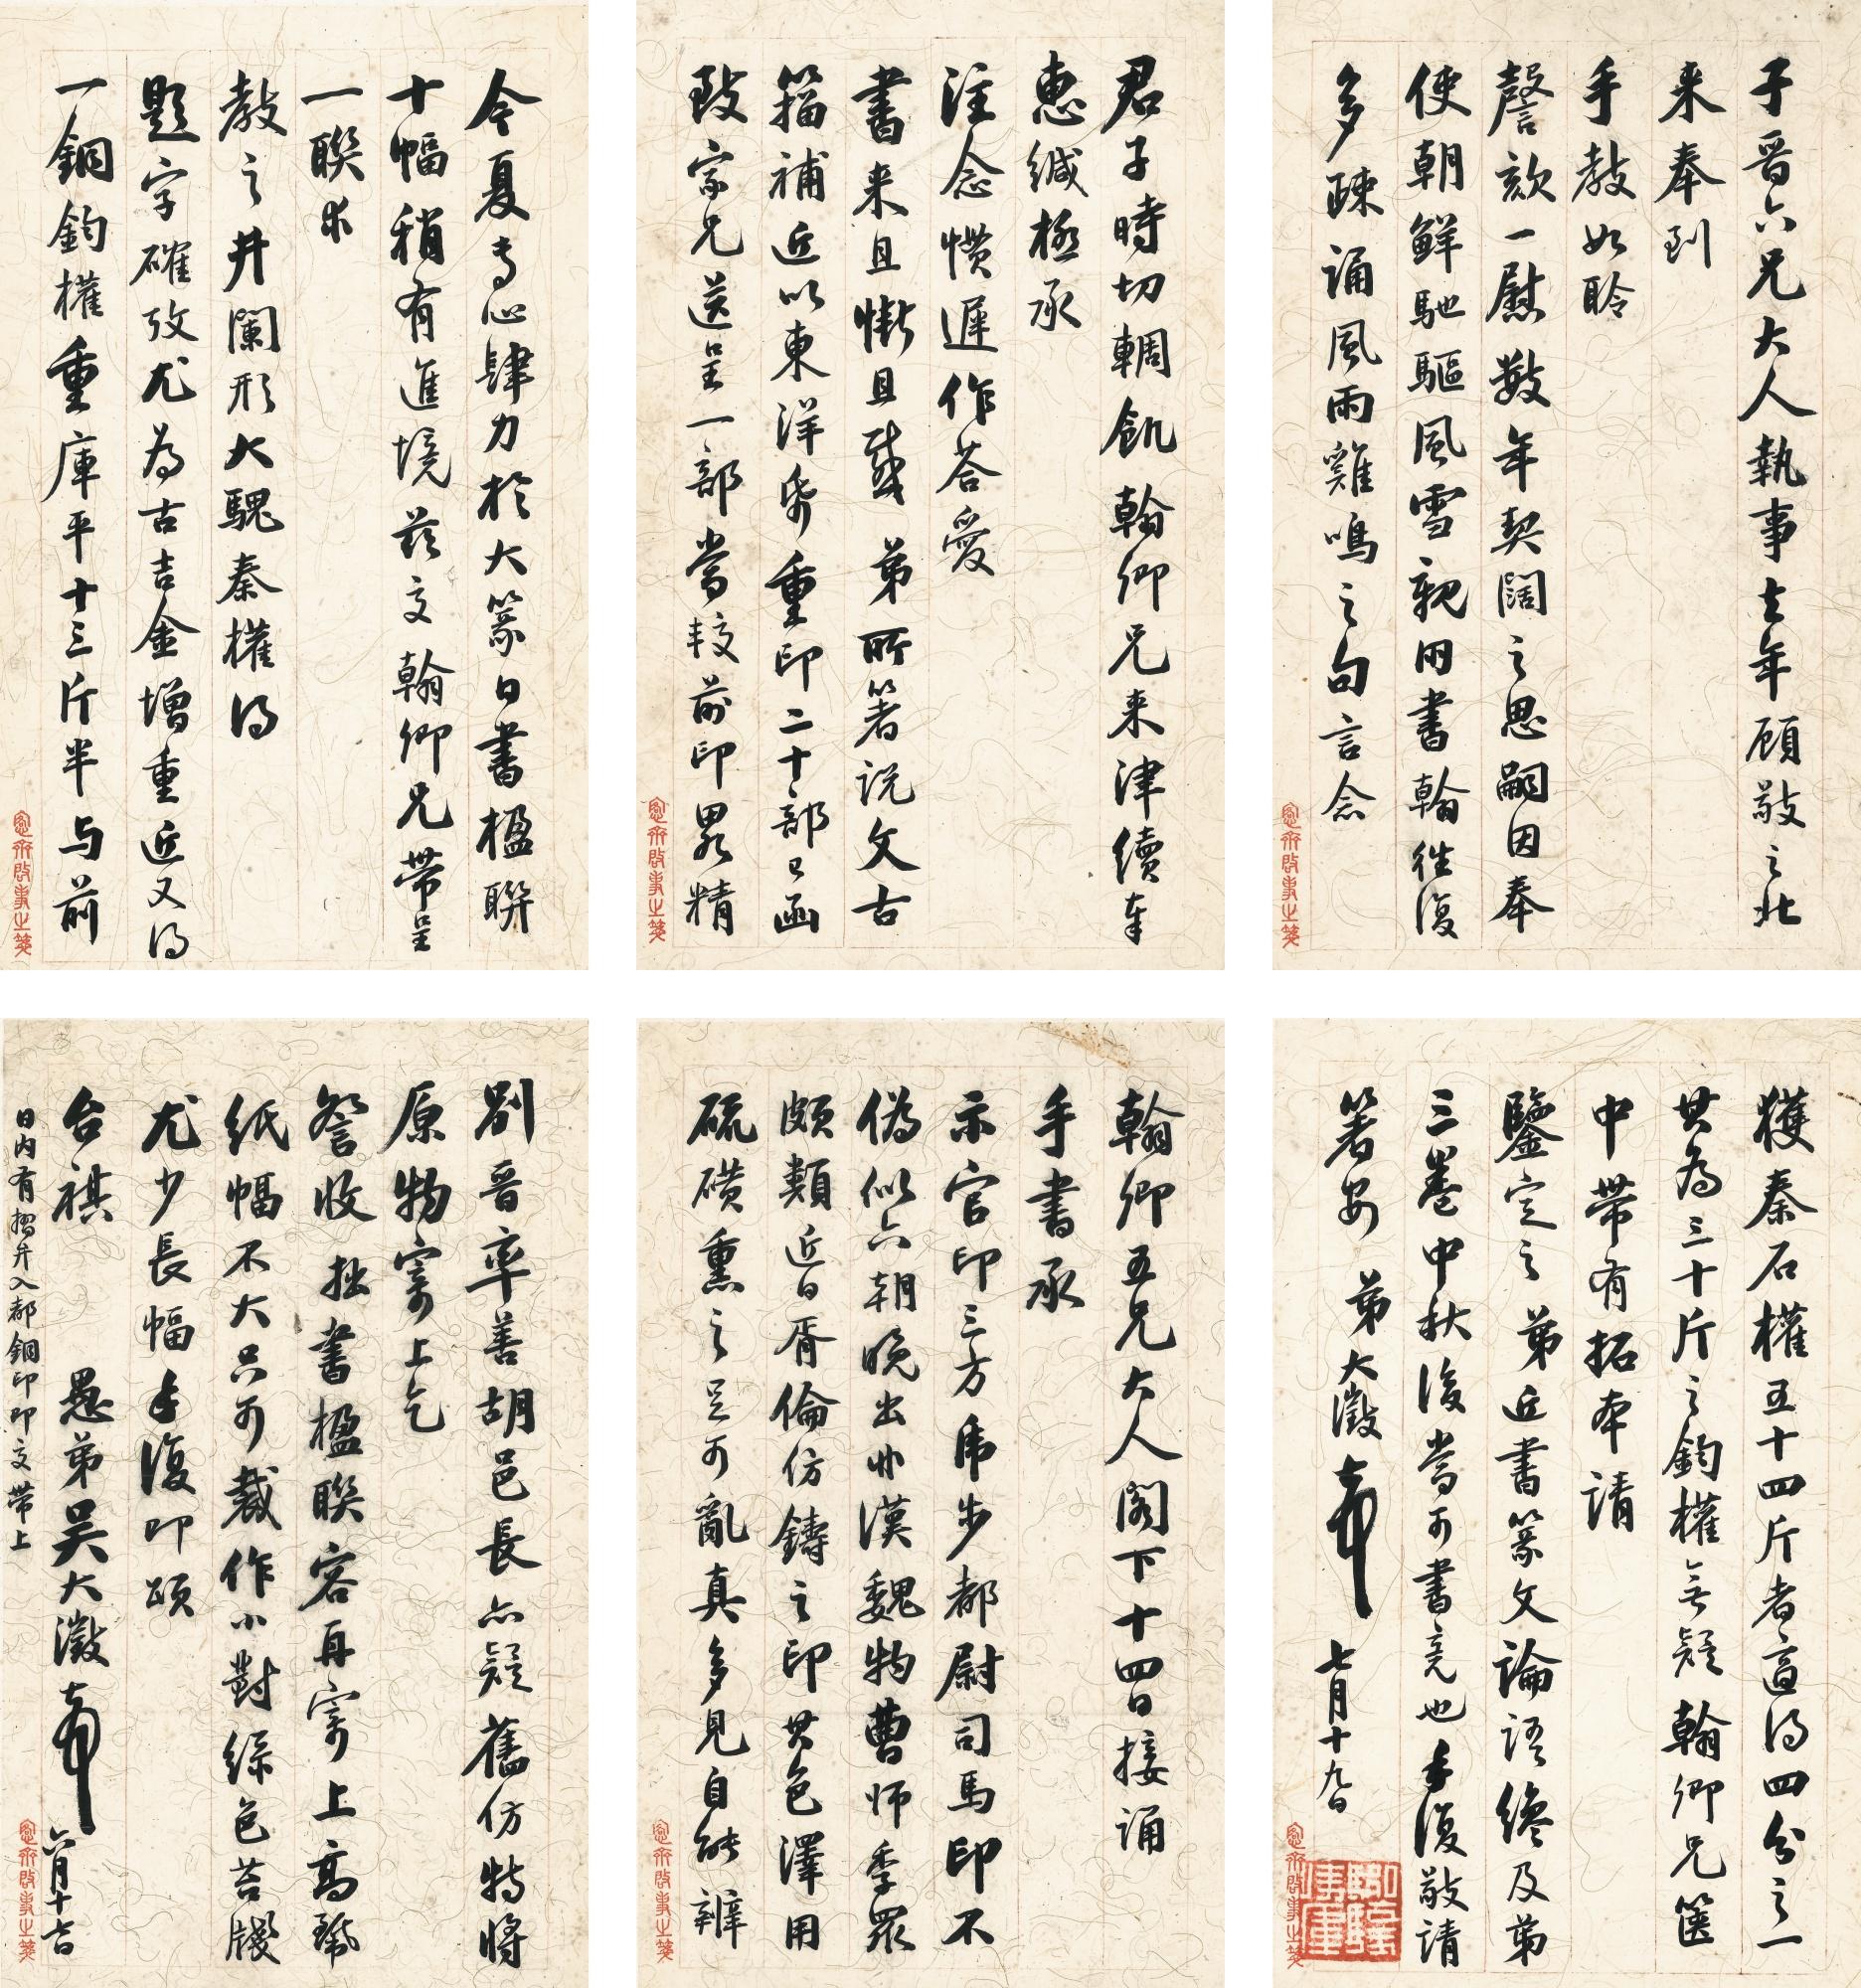 子晋六兄大人執事去年顧敬之北
来奉到
手教如聆
謦欬一慰數年契闊之思嗣因奉
使朝鮮馳驅風雪親朋書翰往復
多疎誦風雨雞鳴之句言念
君子時切輖飢翰卿兄来津續奉
惠緘極承
注念慣遲作荅愛
書来且慚且感弟所箸説文古
籀補近以東洋帋重印二十部已函
致家兄送呈一部當較前印畧精
今夏專心肆力於大篆日書楹聯
十幅稍有進境茲交翰卿兄帶呈
一聯求
教之井闌形大騩秦權得
題字確攷尤為古吉金增重近又得
一銅鈞權重庫平十三斤半与前
獲秦石權五十四斤者適得四分之一
其為三十斤之鈞權無疑翰卿兄篋
中帶有拓本請
鑒定之弟近書篆文論語纔及弟
三卷中秋後當可書竟也手復敬請
箸安 弟大澂 七月十九日
翰卿五兄大人閣下十四日接誦
手書承
示官印三方帍步都尉司馬印不
偽似六朝晚出非漢魏物曹師季眾
頗類近日胥倫仿鑄之印其色澤用
硫磺熏之足可亂真多見自能辨
別晋率善胡邑長亦疑舊仿特將
原物寄上乞
詧收拙書楹聯容再寄上高麗
紙幅不大只可裁作小對綠色苔牋
尤少長幅手復即頌
台祺 愚弟吴大澂 六月十六日
日内有摺弁入都銅印即交帶上
愙齋啟事之箋
愙齋啟事之箋
愙齋啟事之箋
愙齋啟事之箋
愙齋啟事之箋
愙齋啟事之箋